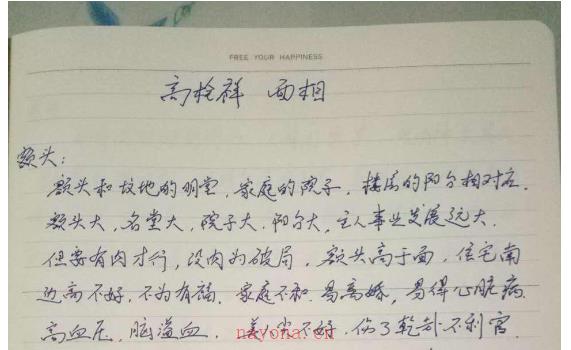 FREE YOUR HAPPINESS
高栓祥 面相
额头:
额头和坟地的明堂,家庭的院子,楼房的阳台相对应.
额头大,名堂大,院子大.阳台大,主人事业发展远大.
但要有肉才行,没肉为破局,额头高于面,住宅南
边高不好,不为有福.家庭不和.易离婚,易得心脏病.
高血压,脑溢血,不好.伤了乾卦不利官
nayona.cn